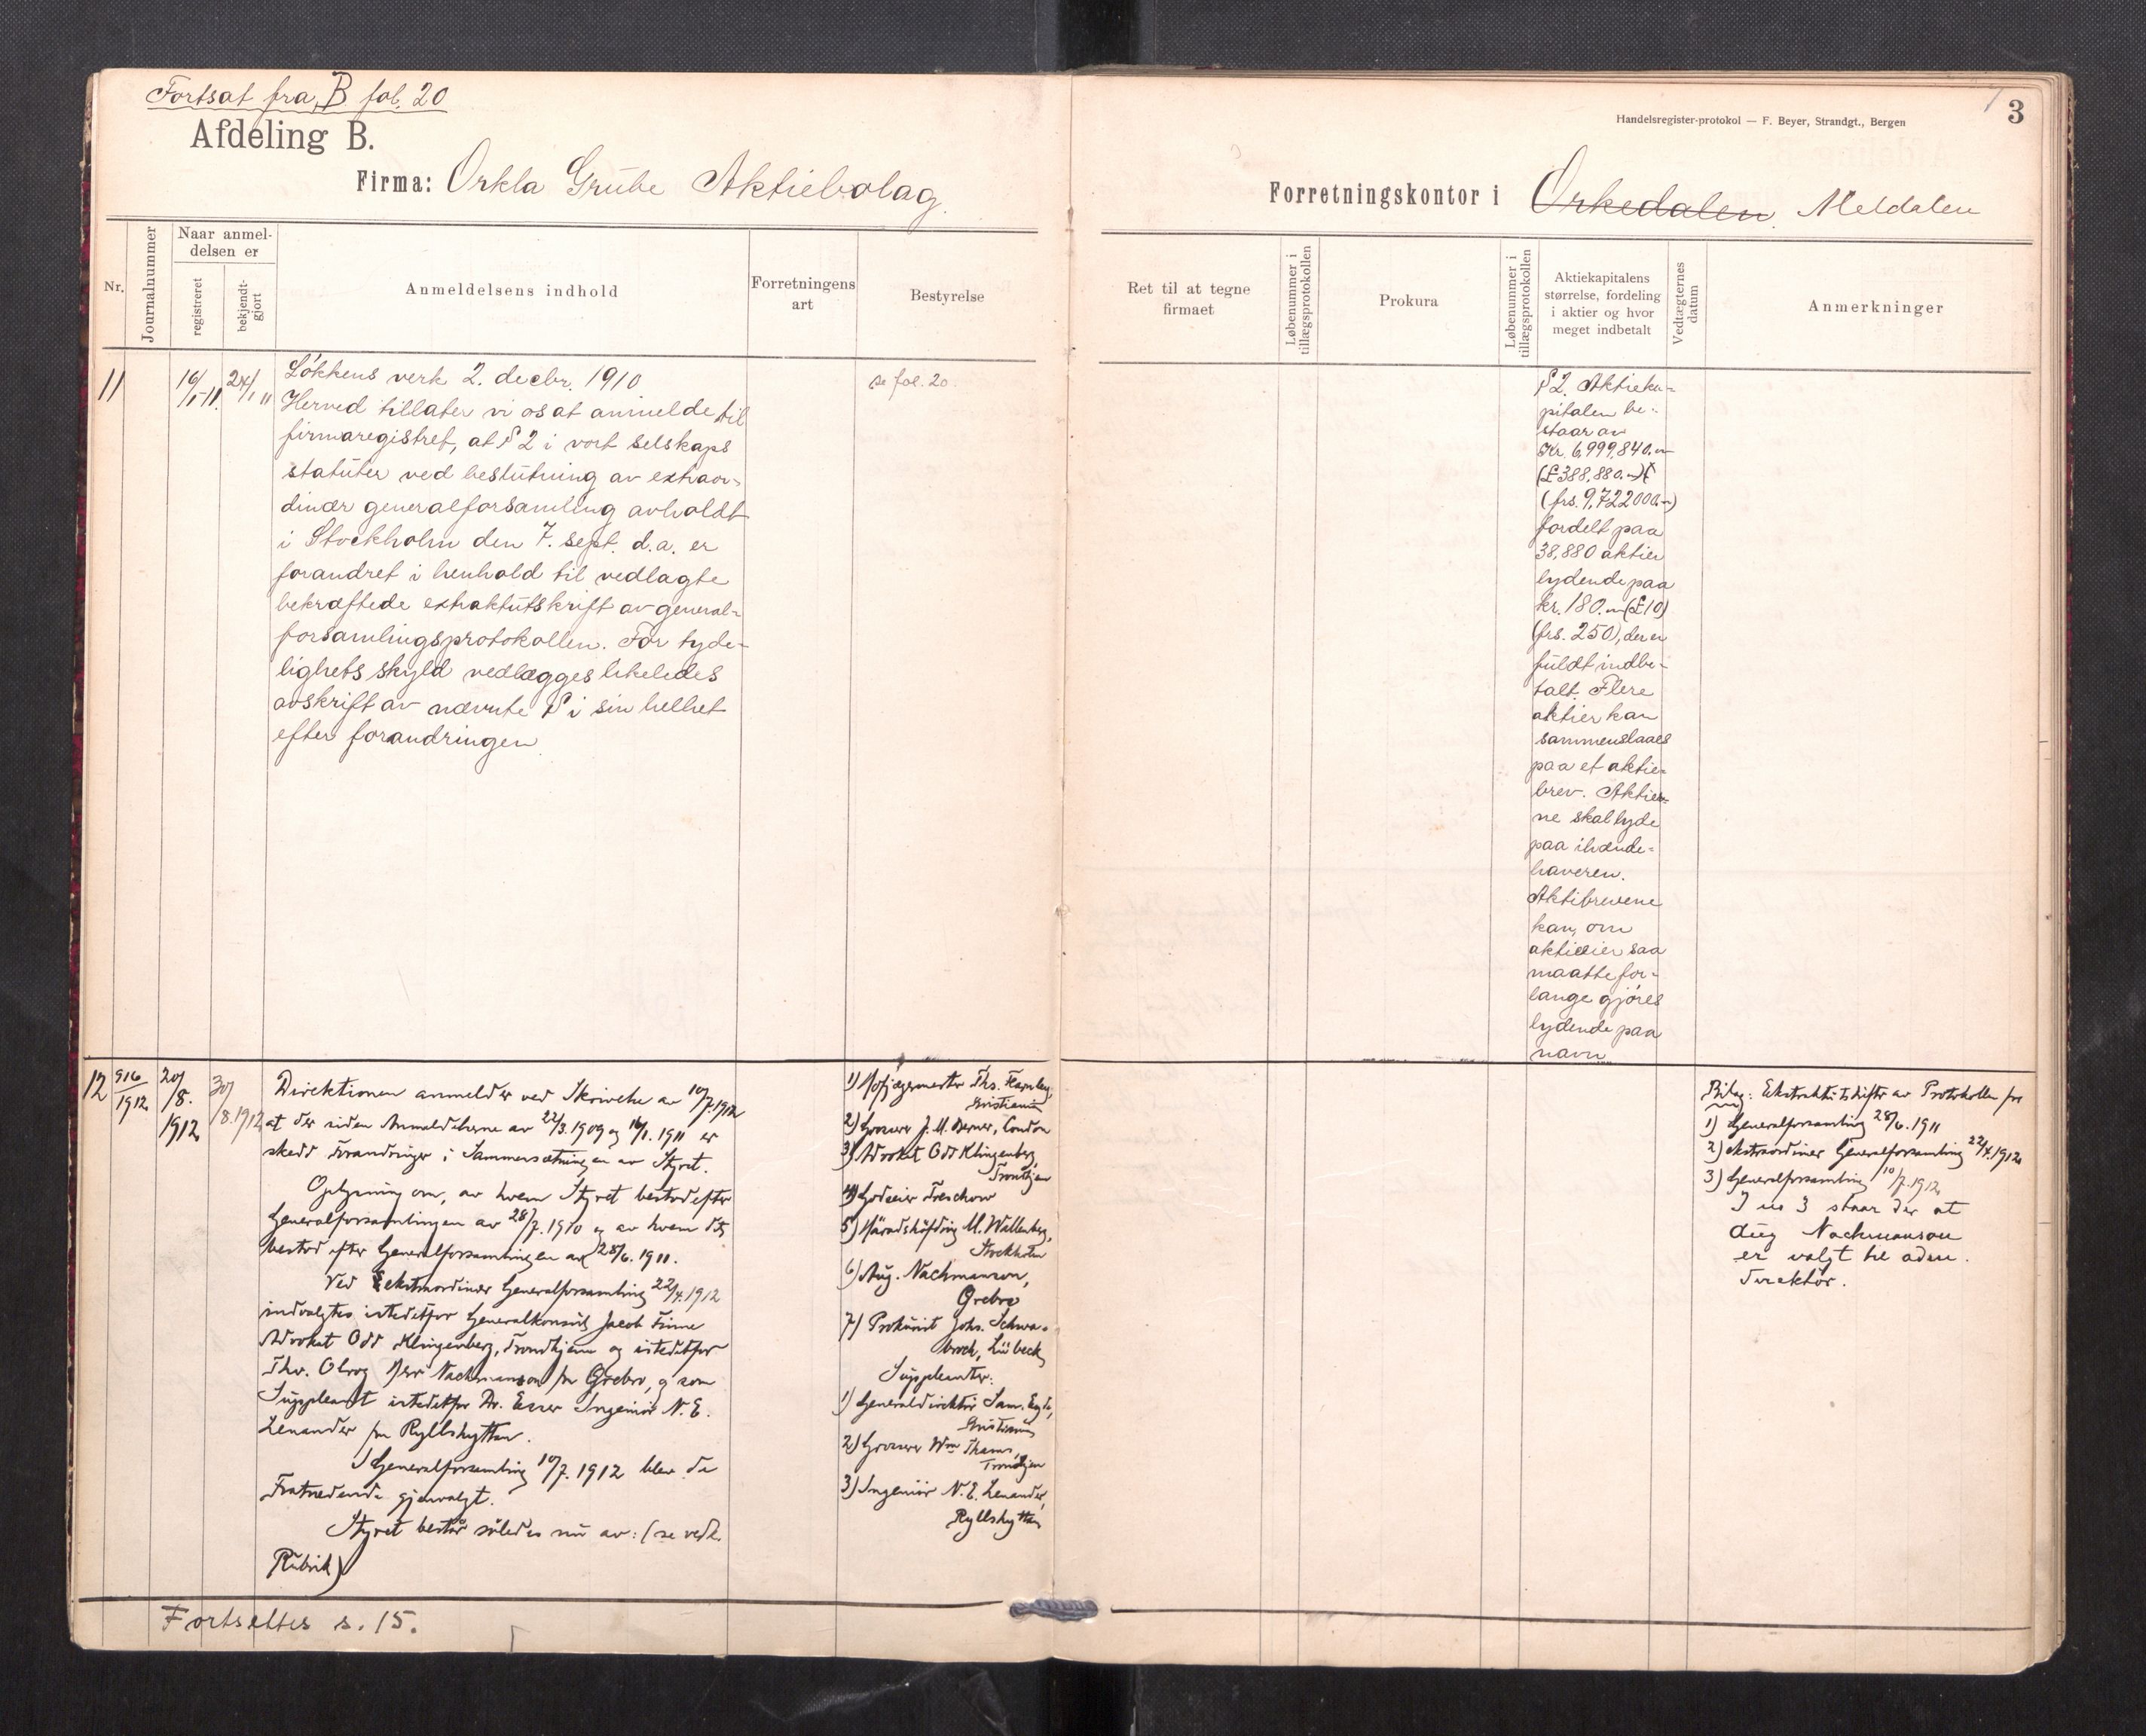 Fortsat fra B fol. 20
Afdeling B.
Firma: Orkla Grube Aktiebolag
Handelsregister-protokol — F. Beyer, Strandgt., Bergen
3
Forretningskontor i Orkedalen Meldalen
Nr.
Journalnummer
Naar anmel-
delsen er
registreret
bekjendt-
gjort
Anmeldelsens indhold
Forretningens
art
Bestyrelse
Ret til at tegne
firmaet
Løbenummer i
tillægsprotokollen
Prokura
Løbenummer i
tillægsprotokollen
Aktiekapitalens
størrelse, fordeling
i aktier og hvor
meget indbetalt
Vedtægternes
datum
Anmerkninger
11
16/1-11.
24/1 11
Løkkens verk 2. decbr. 1910
Herved tillater vi os at anmelde til
firmaregistret, at § 2 i vort selskaps
statuter ved beslutning av extraor-
dinær generalforsamling avholdt
i Stockholm den 7. sept. d.a. er
forandret i henhold til vedlagte
bekræftede extraktutskrift av general-
forsamlingsprotokollen. For tyde-
lighets skyld vedlægges likeledes
avskrift av nævnte § i sin helhet
efter forandringen
se fol. 20.
§ 2. Aktieka-
pitalen be-
staar av
Kr. 6,999,840.-
(£ 388,880.-)
(frs. 9,722000.-)
fordelt paa
38,880 aktier
lydende paa
kr. 180.- (£ 10)
(frs. 250), der er
fuldt indbe-
talt. Flere
aktier kan
sammenslaaes
paa et aktie-
brev. Aktier-
ne skal lyde
paa ihænde-
haveren.
Aktibrevene
kan, om
aktieeier saa
maatte for-
lange gjøres
lydende paa
navn
12
916
1912
20/
8.
1912
30/
8.1912
Direktionen anmelder ved Skrivelse av 10/7.1912
at der siden Anmeldelserne av 22/3.1909 og 16/1.1911 er
skedd Forandringer i Sammensætningen av Styret.
Oplysning om, av hvem Styret bestod efter
Generalforsamlingen av 28/7.1910 og av hvem det
bestod efter Generalforsamlingen av 28/6.1911.
Ved ekstraordinær Generalforsamling 22/4.1912
indvalgtes istedetfor Generalkonsul Jacob Finne
Advokat Odd Klingenberg, Trondhjem og istedetfor
Thv. Olrog Herr Nachmanson fra Örebro, og som
Suppleant istedetfor Dr. Esser Ingeniør N. E.
Lenander fra Ryllshyttan.
I Generalforsamling 10/7.1912 blev de
Fratrædende gjenvalgt.
Styret består således nu av: (se vedk.
Rubrik)
1) Hofjægermester Ths. Fearnley,
Kristiania
2) Grosserer J. M. Berner, London
3) Advokat Odd Klingenberg,
Trondhjem
4) Godseier Treschow
5) Häradshöfding M. Wallenberg,
Stockholm
6) Aug. Nachmanson,
Örebro
7) Prokurist Johs. Schwa-
broch, Lübeck
Suppleanter:
1) Generaldirektør Sam. Eyde,
Kristiania
2) Grosserer Wm Thams,
Trondhjem
3) Ingeniør N. E. Lenander,
Ryllshyttan
Bilag: Ekstraktutskrifter av Protokollen for
1) Generalforsamling 28/6.1911
2) ekstraordinær Generalforsamling 22/4.1912
3) Generalforsamling 10/7.1912
I no 3 staar der at
Aug Nachmanson
er valgt til adm.
direktør.
Fortsettes s. 15.